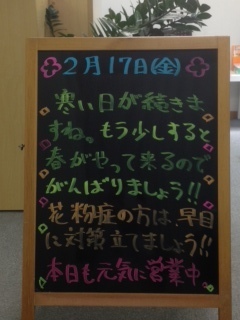 2月17日(金)
寒い日が続きま
すね。もう少しすると
春がやって来るので
がんばりましょう!!
花粉症の方は、早目
に対策立てましょう!!
本日も元気に営業中。